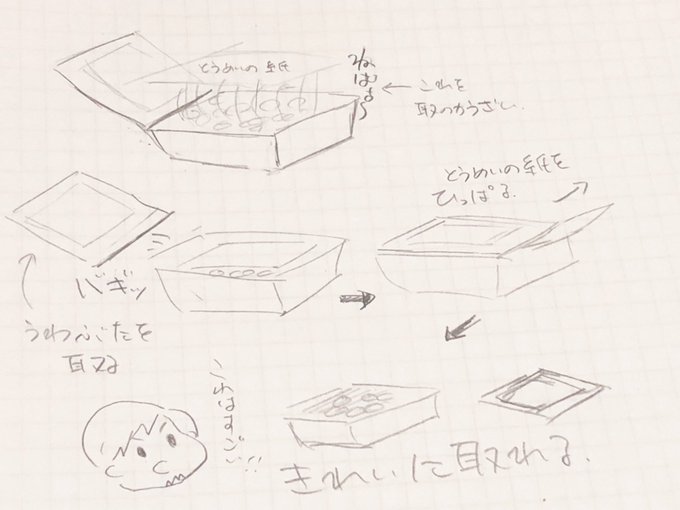 とうめいの紙
ねばぁ〜
これを
取るのがうざい
とうめいの紙を
ひっぱる。
バギッ
うわぶたを
取る
これはすごい!!
きれいに取れる。